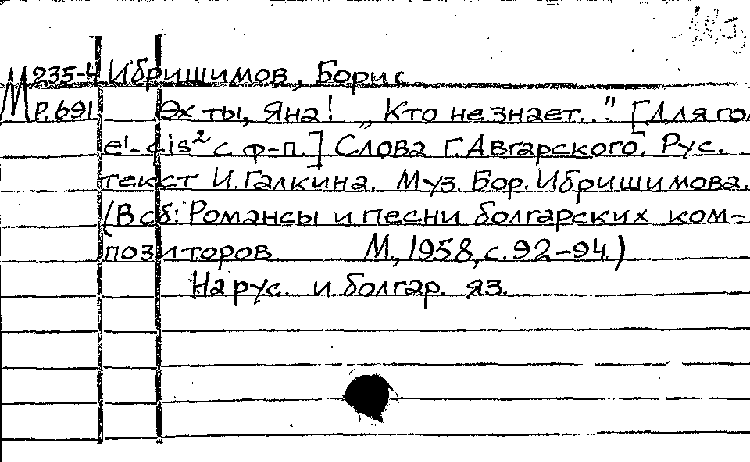 М235-4 Ибришимов, Борис
Р.691 Эх ты, Яна! „Кто не знает..." [Для гол.
e¹-cis² с ф-п.] Слова Г. Авгарского. Рус.
текст И. Галкина. Муз. Бор. Ибришимова.
(В сб: Романсы и песни болгарских ком-
позиторов М., 1958, с. 92-94.)
На рус. и болгар. яз.